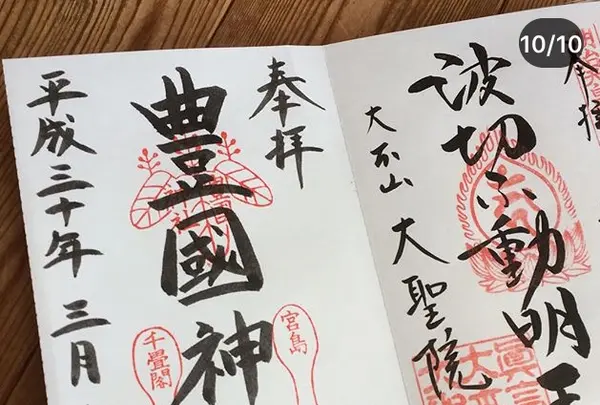 10/10
奉拝
豊國神
平成三十年三月
宮島
千畳閣
波切不動明王
大本山大聖院